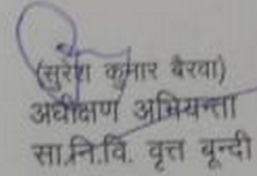 (सुरेश कुमार बैरवा)
अधीक्षण अभियन्ता
सा.नि.वि. वृत्त बून्दी